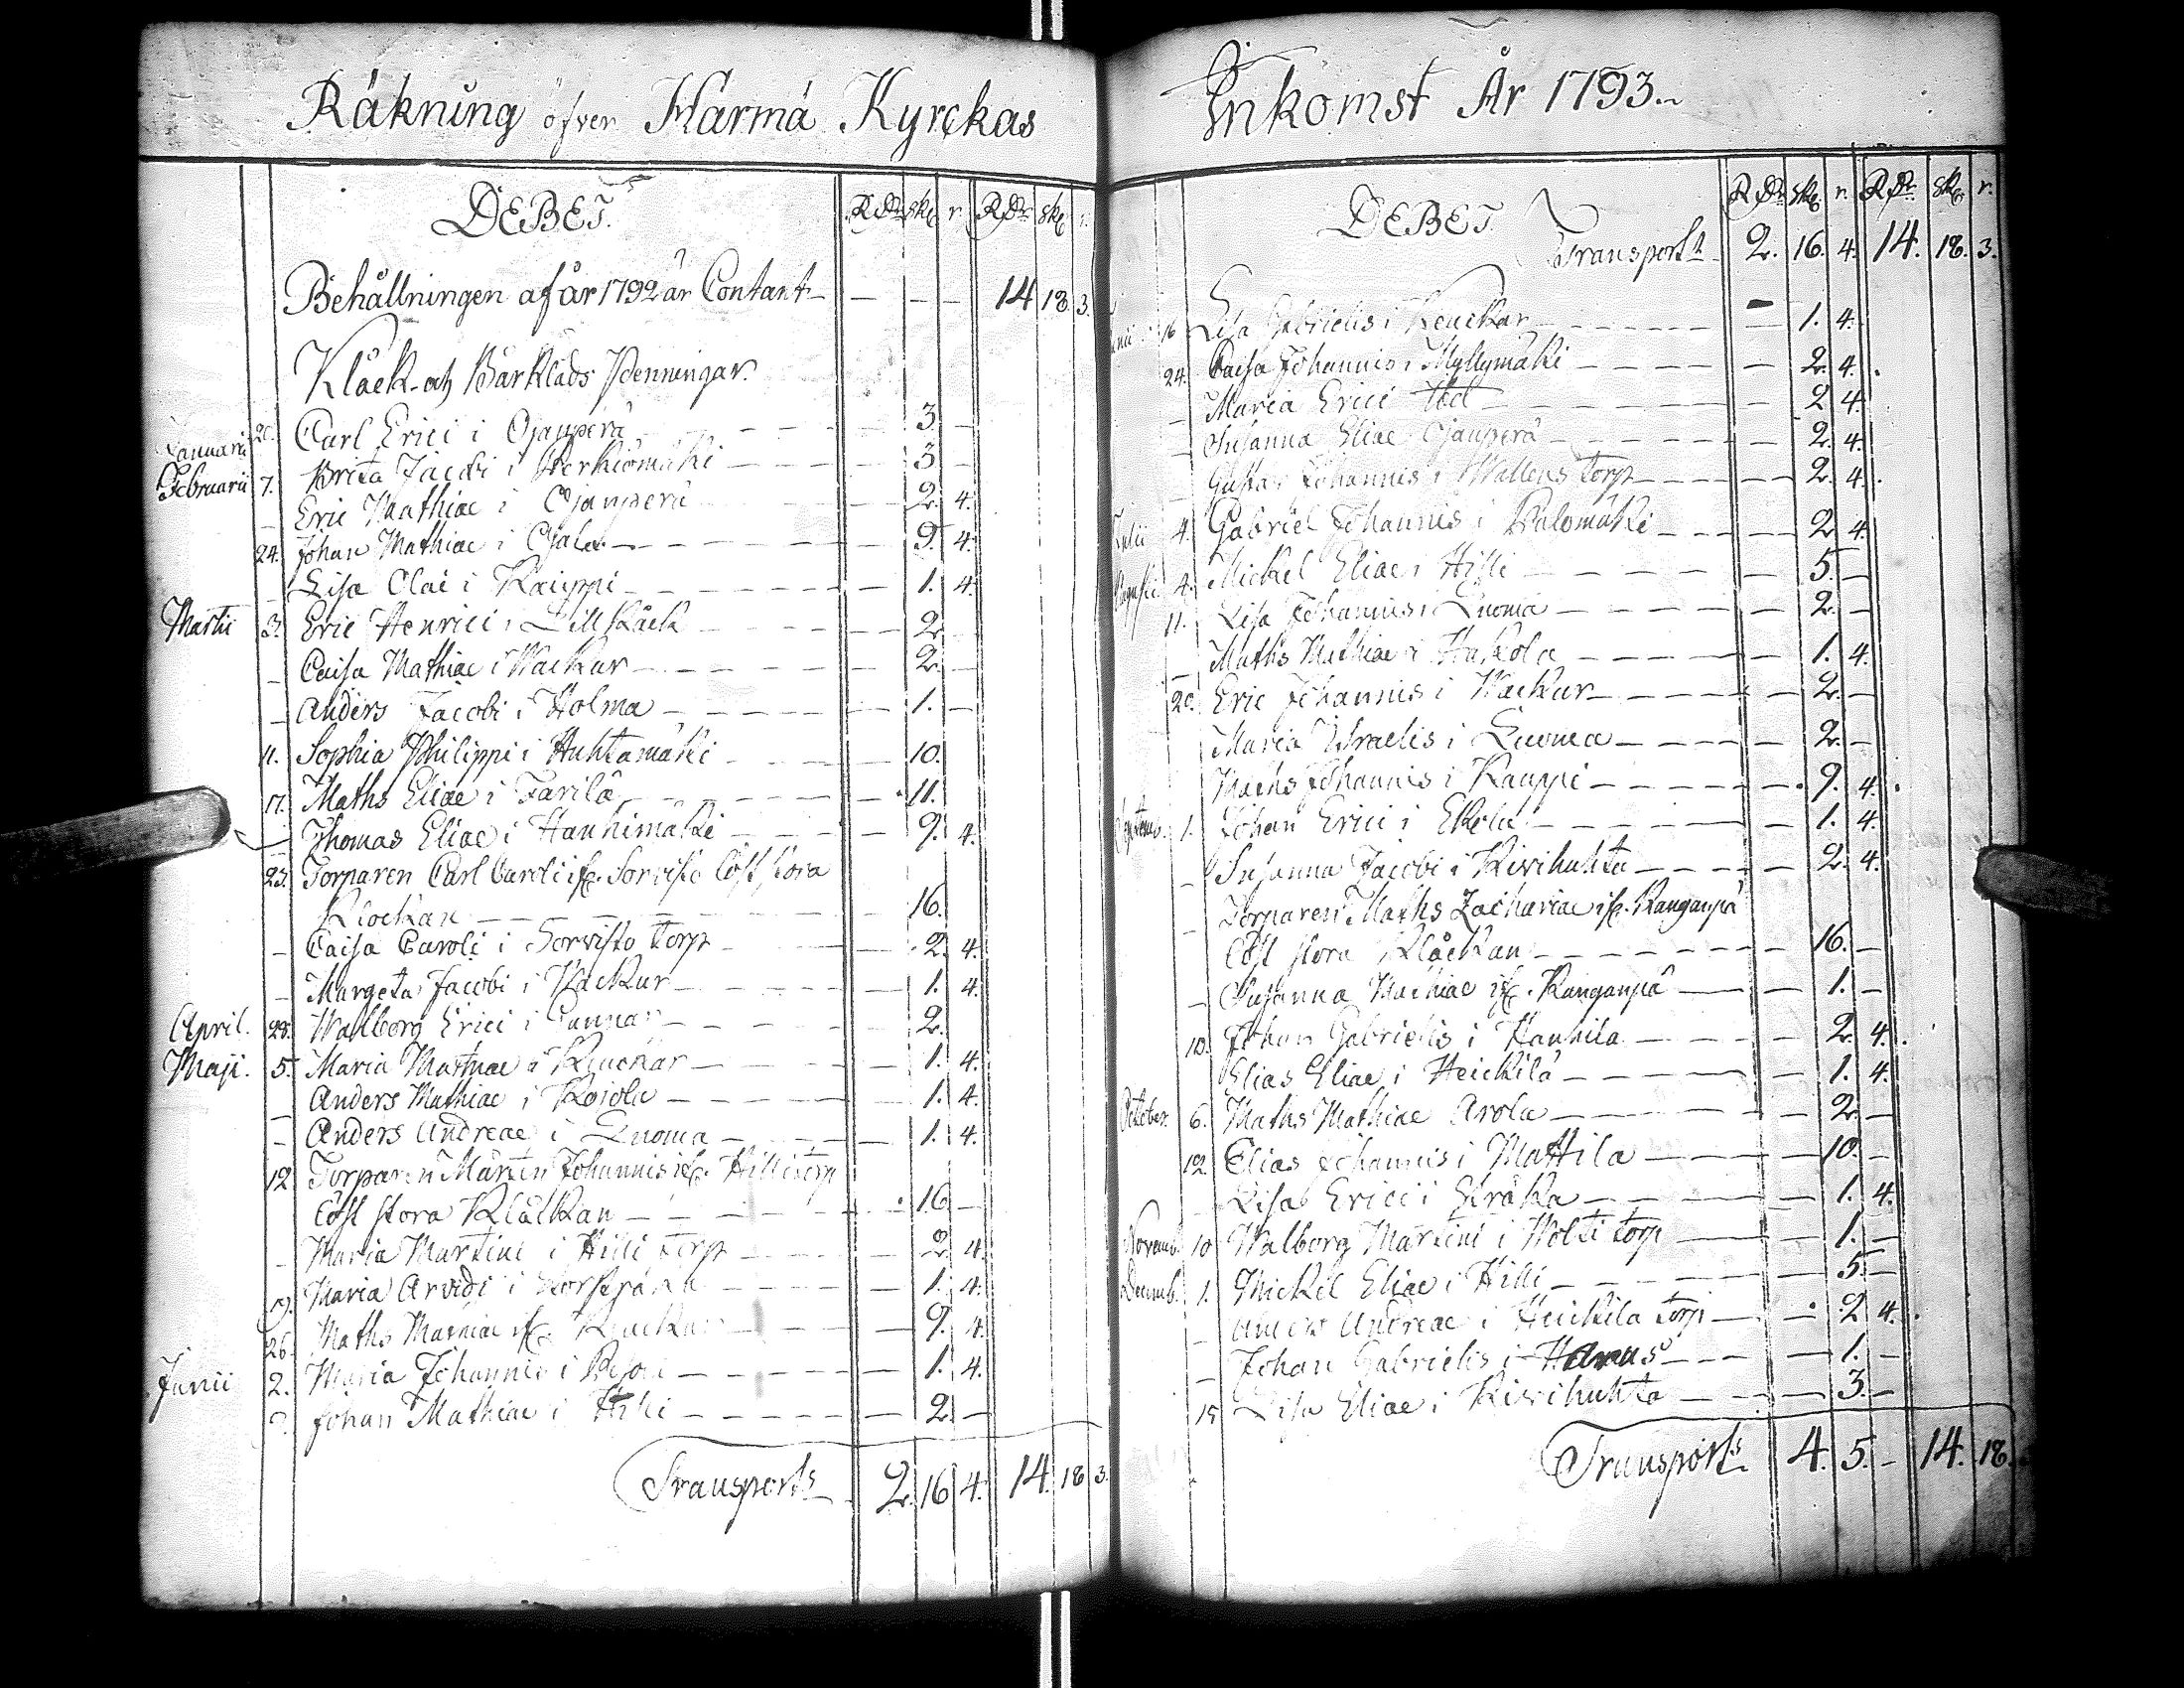 Räkning öfver Härmä Kyrckas
DEBET.
R Dr skg r. R Dr skg r.
Behållningen af år 1792 är Contant — — — 14 18 3.
Klåck- och Bårklåds Penningar.
Januarii 20. Carl Erici i Ojanperä — — 3 —
Februarii 7. Brita Jacobi i Perkiömäki — — 3 —
— Eric Mathiae i Ojanperä — — 2. 4.
24. Johan Mathiae i Ojala — — 9. 4.
— Lisa Olai i Kauppi — — 1. 4.
Martii 3. Eric Henrici i Lillkåck — — 2 —
— Caisa Mathiae i Wackur — — 2. —
— Anders Jacobi i Holma — — 1. —
11. Sophia Philippi i Huhtamäki — — 10.
17. Maths Eliae i Farilä — — 11.
— Thomas Eliae i Hanhimäki — — 9. 4.
23. Torparen Carl Caroli ifr. Sorvisto Cost stora
Klockan — — 16.
— Caisa Caroli i Sorvisto torp — — 2. 4.
— Margeta Jacobi i Wackur — — 1. 4.
April. 28. Walborg Erici i — — 2.
Maji. 5. Maria Mathiae i Keuckar — — 1. 4.
— Anders Mathiae i Koiola — — 1. 4.
— Anders Andreae i Luoma — — 1. 4.
12 Torparen Mårten Johannis ifr. Hilli torp
Cost stora Klåckan — — 16 —
— Maria Martini i Hilli torp — — 2 4.
19. Maria Arvidi i — — 1. 4.
26. Maths Mathiae ifr. Keuckar — — 9. 4.
Junii 2. Maria Johannis i — — 1. 4.
Johan Mathiae i Hilli — — 2 —
Transport 2. 16 4. 14. 18 3.
Inkomst År 1793.
DEBET.
R Dr. skg. r. R Dr. skg r.
Transport 2. 16. 4. 14. 18. 3.
16 Lisa Gabrielis i Keuckar — — 1. 4.
24. Caisa Johannis i Myllymäki — — 2. 4.
— Maria Erici — — 2 4.
— Susanna Eliae Ojanperä — — 2. 4.
— Gustav Johannis i Wallens torp — — 2. 4.
Julii 4. Gabriel Johannis i Palomäki — — 2 4.
Augusti 4. Mickel Eliae i Hilli — — 5. —
11. Lisa Johannis i Luoma — — 2. —
— Maths Mathiae i Hakola — — 1. 4.
20. Eric Johannis i Wackur — — 2. —
Maria Israelis i Luoma — — 2. —
Maths Johannis i Kauppi — — 9. 4.
Septemb. 1. Johan Erici i Ekola — — 1. 4.
— Susanna Jacobi i Kivihuhta — — 2. 4.
— Torparen Maths Zachariae ifr. Kanganpä
Cost stora Klåckan — — 16. —
— Susanna Mathiae ifr. Kanganpä — — 1. —
10. Johan Gabrielis i Hanhila — — 2. 4.
Elias Eliae i Heickilä — — 1. 4.
October. 6. Maths Mathiae Arola — — 2. —
12. Elias Johannis i Mattila — — 10. —
Lisa Erici i Sträka — — 1. 4.
Novemb. 10 Walborg Martini i Wolti torp — — 1. —
Decemb. 1. Mickel Eliae i Hilli — — 5. —
— Anders Andreae i Heickila torp — — 2 4.
— Johan Gabrielis i — — 1. —
15 Lisa Eliae i Kivihuhta — — 3. —
Transport 4. 5. — 14. 18.